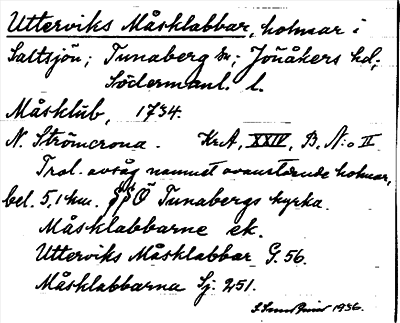 Utterviks Måsklabbar, holmar i
Saltsjön; Tunaberg sn; Jönåkers hd;
Södermanl. l.
Måsklub, 1734.
N. Strömcrona. Kr.A, XXIV, B, N:o II
Trol. avsåg namnet ovanstående holmar,
bel. 5,1 km. SSÖ Tunabergs kyrka.
Måsklabbarne ek.
Utterviks Måsklabbar G. 56.
Måsklabbarna Sj. 251.
1936.